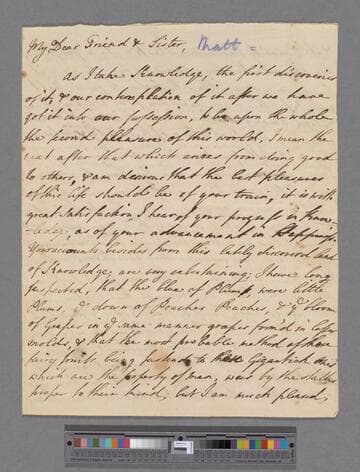 My Dear Friend & Sister, Matt =
As I take Knowledge, the first discoveries
of it, & our contemplation of it after we have
got it into our possession, to be upon the whole
the second pleasure of this world, I mean the
next after that which arises from doing good
to others, & am desirous that the best pleasures
of this life should be of your train, it is with
great satisfaction I hear of your progress in Know-
ledge, as of your advancement in Happiness.
Your accounts besides from this lately discovered land
of Knowledge, are very entertaining; I have long
suspected, that the blue of Plumbs, were little
Plums, ye down of Peaches Peaches, & ye bloom
of Grapes in ye same manner grapes
& that the most probable method of these
fairy fruits being to their Gigantick ones
which are the property of man, was by the
proper to their kind; but I am much pleased